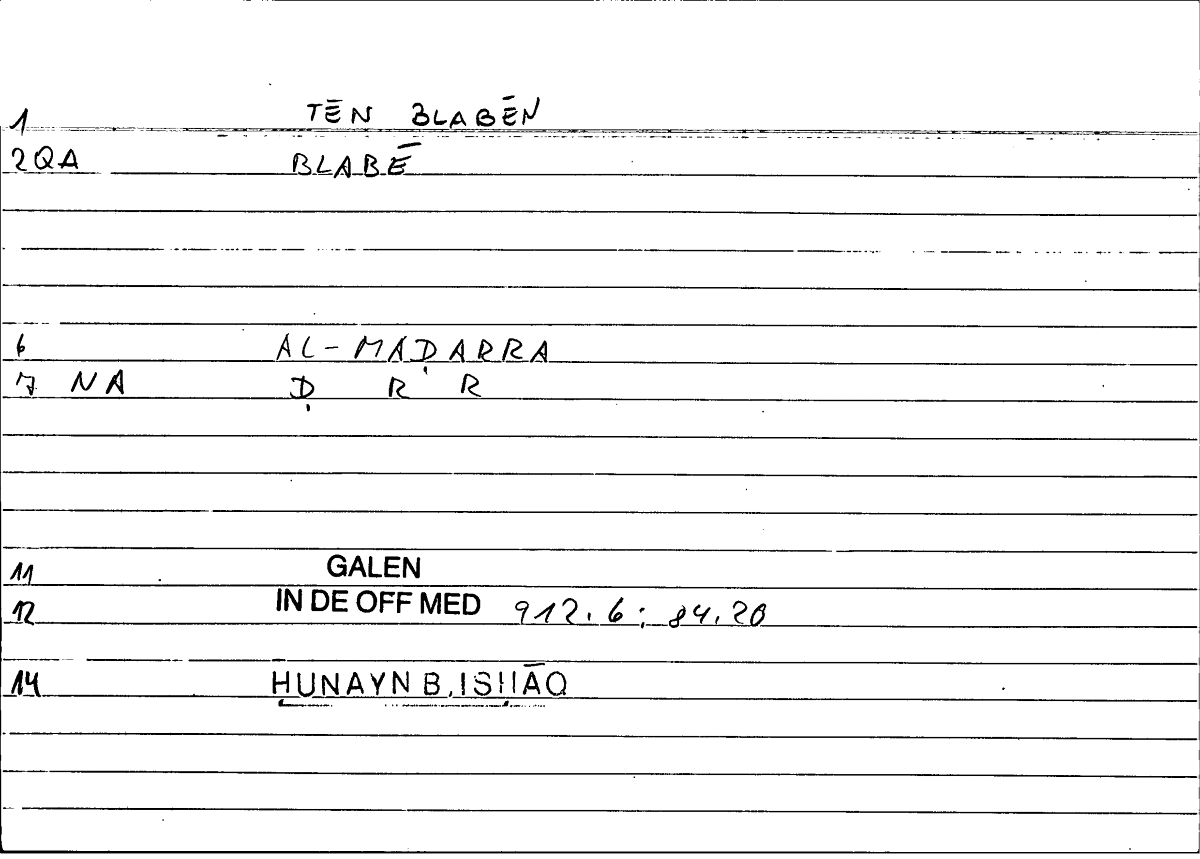 1 TĒN BLABĒN
2QA BLABĒ
6 AL-MAḌARRA
7 NA Ḍ R R
11 GALEN
12 IN DE OFF MED 912.6; 84.20
14 ḤUNAYN B. ISḤĀQ